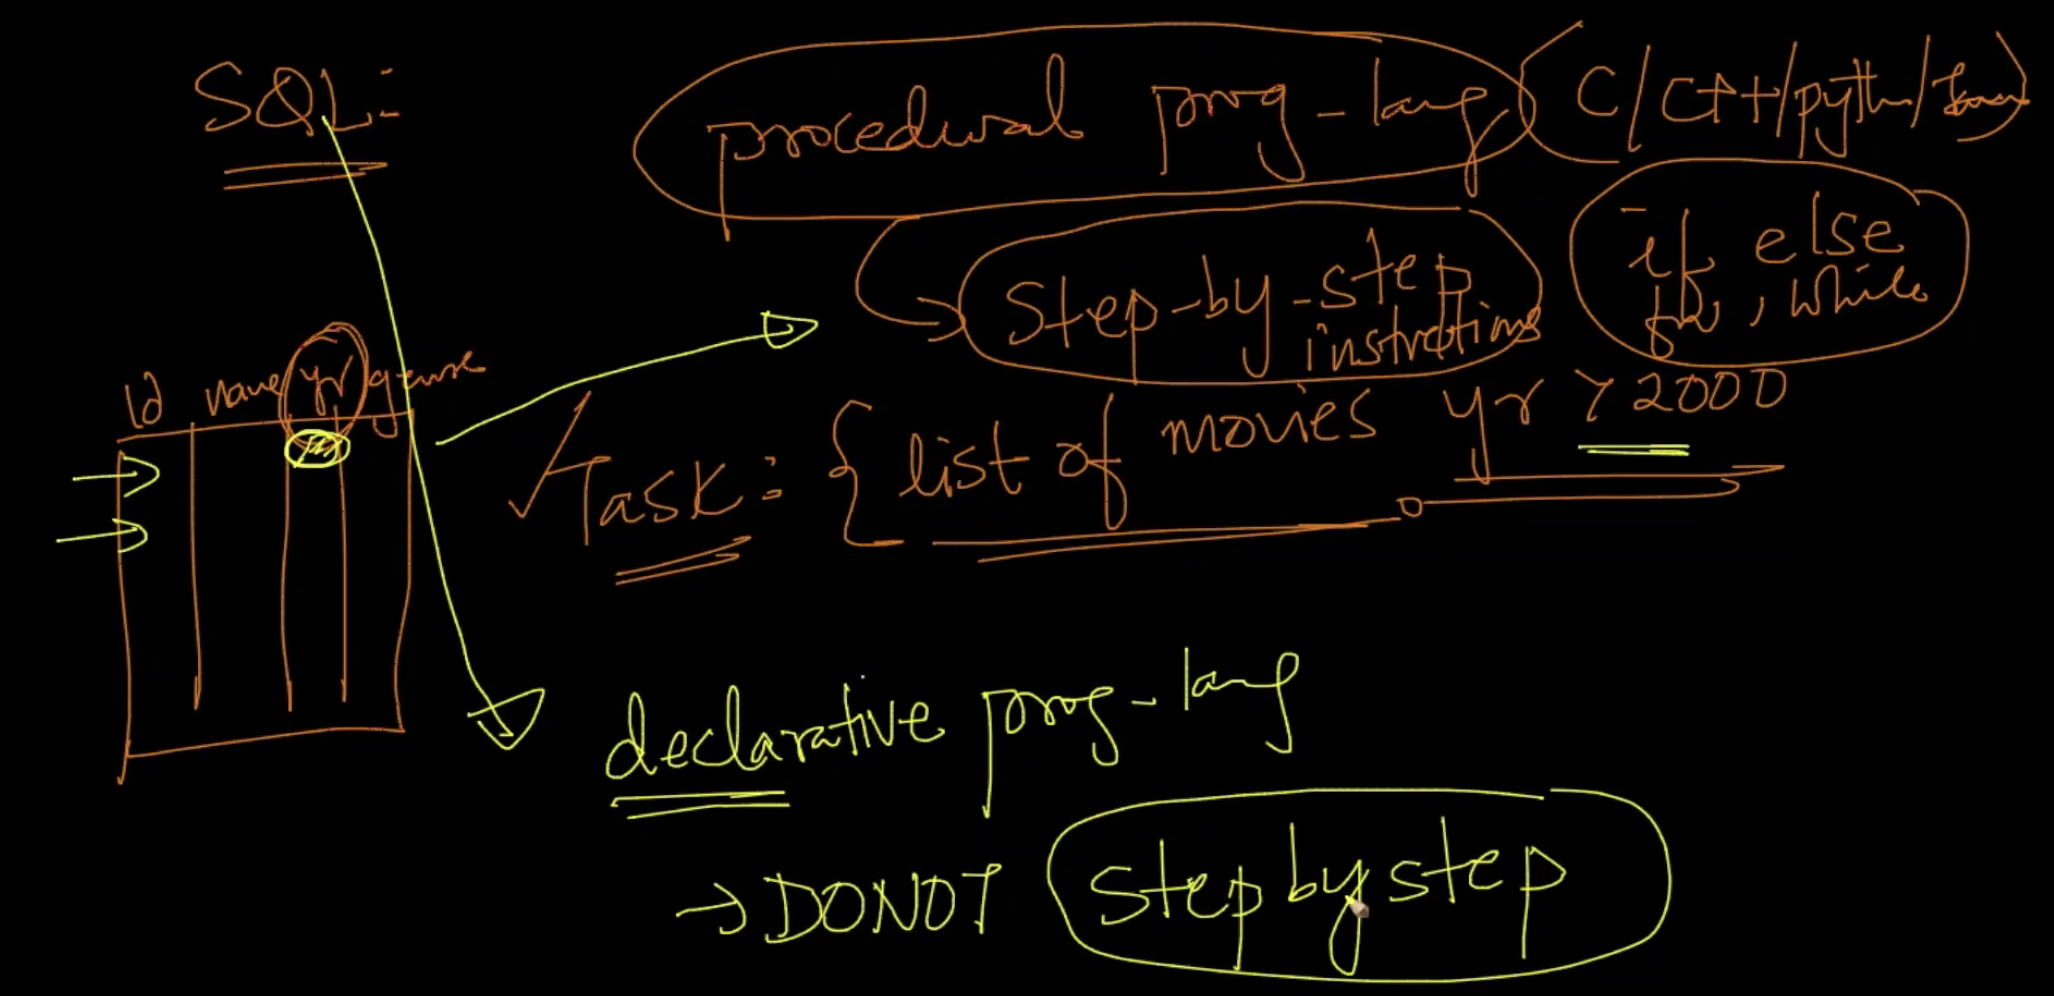 SQL:-
procedural prog-lang (C/C++/python/Java)
Step-by-step instructions
if else
for, while
id name yr genre
Task: { list of movies yr > 2000
declarative prog-lang
→ DONOT step by step